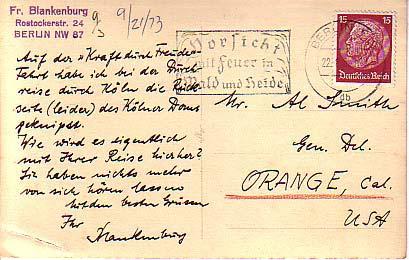 Fr. Blankenburg
Rostockerstr. 24
BERLIN NW 87
9/21/73
Auf der "Kraft durch Freude"
Fahrt habe ich bei der Durch-
reise durch Köln die Rück-
seite (leider) des Kölner Doms
geknipst.
Wie wird es eigentlich
mit Ihrer Reise hierher?
Sie haben nichts mehr
von sich hören lassen
Mit den besten Grüssen
Ihr
Blankenburg
Vorsicht
mit Feuer in
Wald und Heide
BERLIN
22.
15 15
Deutsches Reich
Mr. Al Smith
Gen. Del.
ORANGE, Cal.
USA